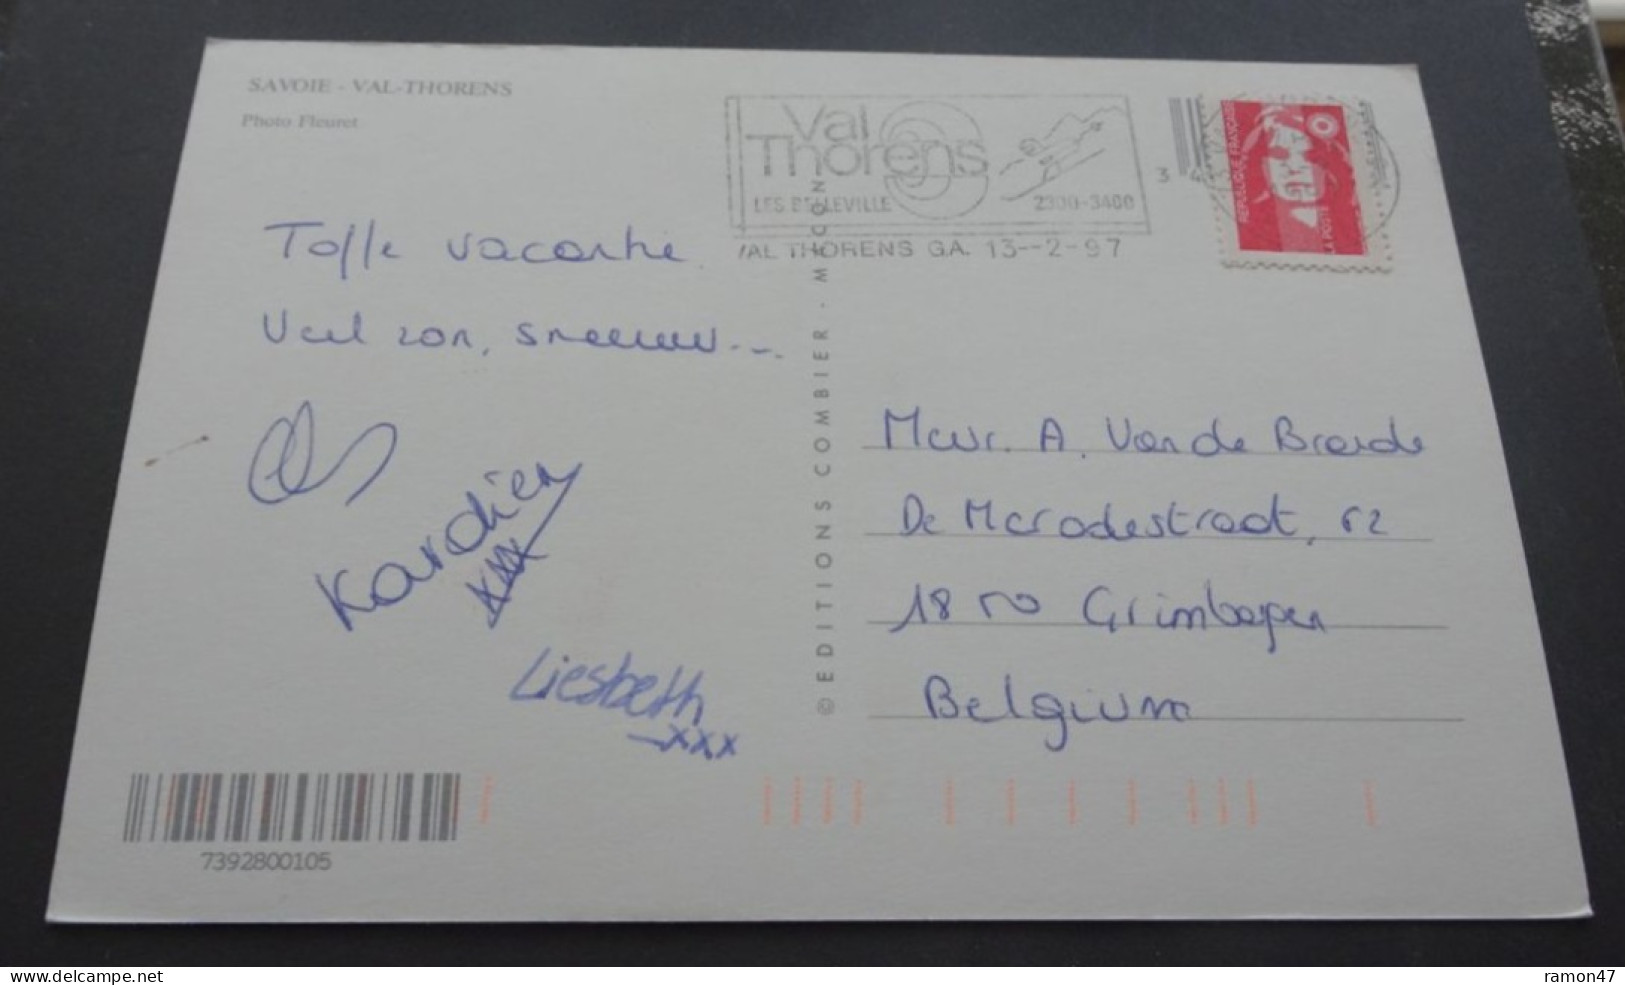 SAVOIE - VAL-THORENS
Photo Fleuret
Val
Thorens
LES BELLEVILLE 2300-3400
VAL THORENS G.A. 13--2-97
REPUBLIQUE FRANÇAISE
LA POSTE
Toffe vacantie.
Veel zon, sneeuw...
Kardien
xxx
Liesbeth
xxx
© EDITIONS COMBIER - MACON
Mevr. A. Van de Brande
De Merodestraat, 62
1850 Grimbergen
Belgium
7392800105
www.delcampe.net
ramon47